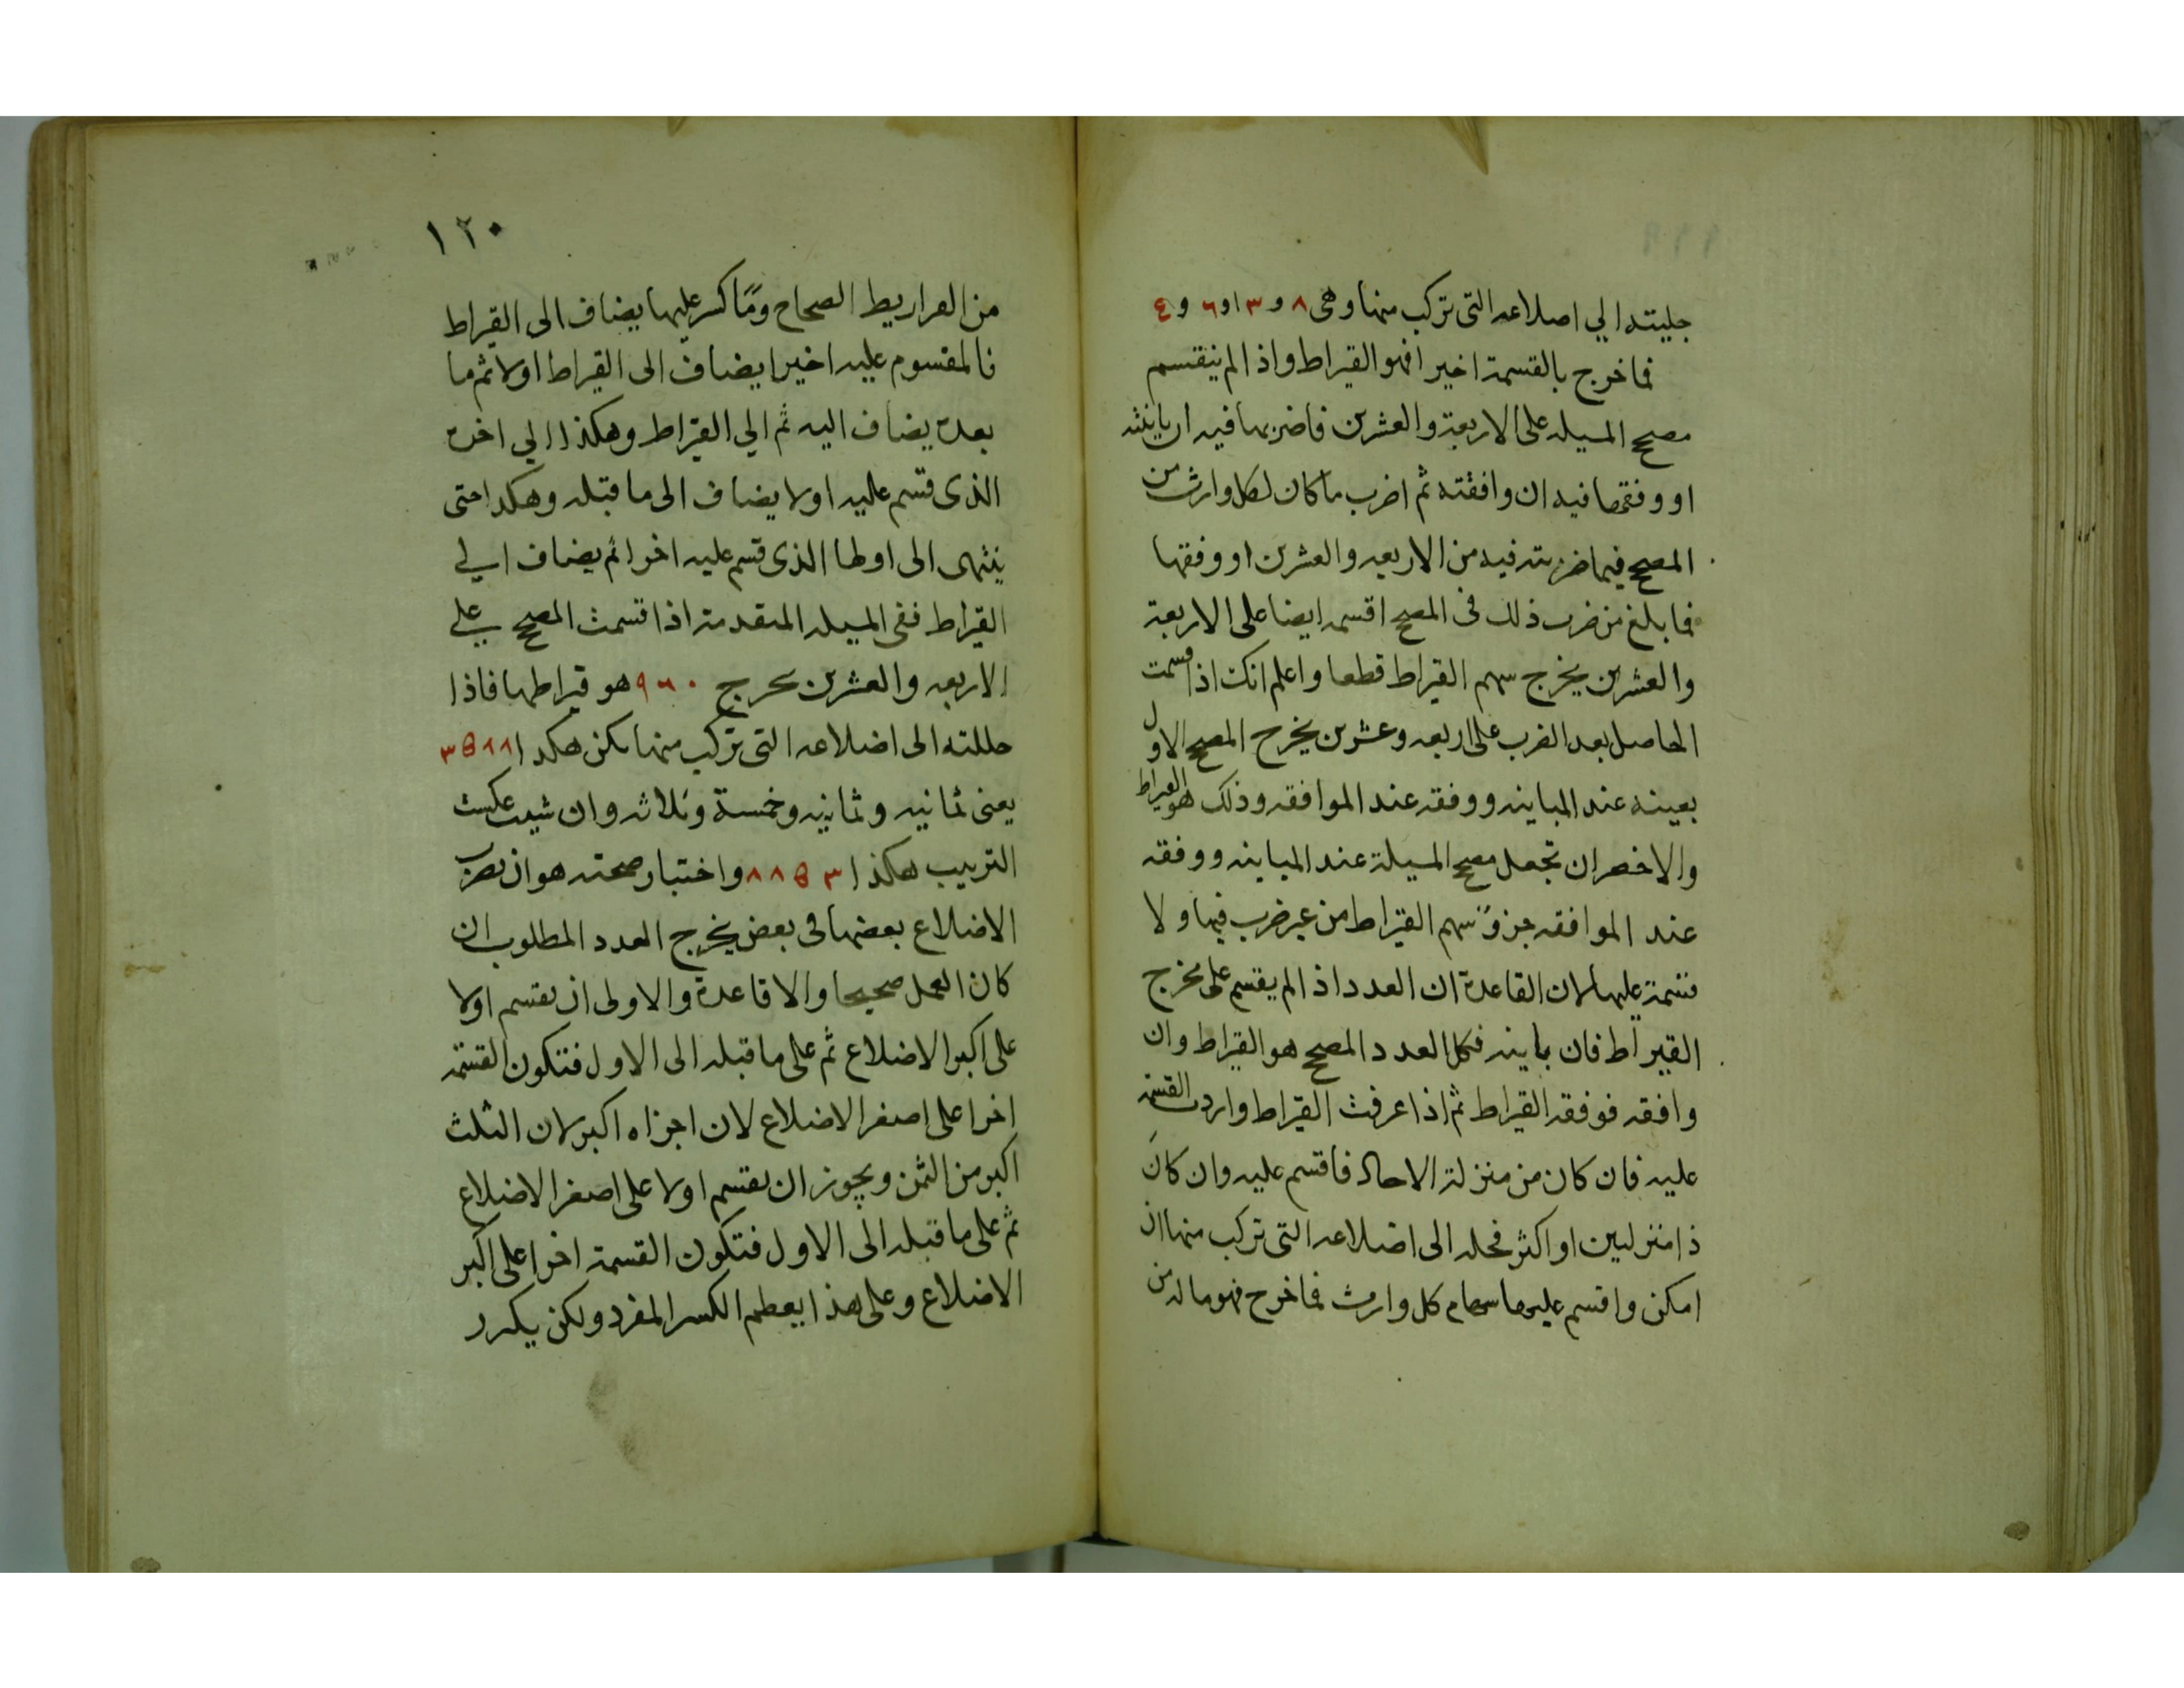 جليته الي اصلاعه التي تركب منها وهي ٨ و ٣ او ٦ و ٤
فما خرج بالقسمة اخيرا فهو القيراط واذا لم ينقسم
مصحح المسيله على الاربعة والعشرين فاضربها فيه ان باينته
او وفقها فيه ان وافقته ثم اضرب ما كان لكل وارث من
المصحح فيما ضربته فيه من الاربعه والعشرين او وفقها
فما بلغ من ضرب ذلك في المصحح اقسمه ايضا على الاربعة
والعشرين يخرج سهم القيراط قطعا واعلم انك اذا قسمت
الحاصل بعد الضرب على اربعه وعشرين يخرج المصحح الاول
بعينه عند المباينه ووفقه عند الموافقه وذلك هو القيراط
والاخصر ان تجعل مصحح المسيلة عند المباينه ووفقه
عند الموافقه جزو سهم القيراط من غير ضرب فيها ولا
قسمة عليها لان القاعدة ان العدد اذا لم يقسم على مخرج
القيراط فان باينه فكل العدد المصحح هو القيراط وان
وافقه فوفقه القيراط ثم اذا عرفت القيراط واردت القسمة
عليه فان كان من منزلة الاحاد فاقسم عليه وان كان
ذا منزلتين او اكثر فحله الى اضلاعه التي تركب منها ان
امكن واقسم عليها سهام كل وارث فما خرج فهو ماله من
١٢٠
من القراريط الصحاح وما كسر عليها يضاف الى القيراط
فالمقسوم عليه اخيرا يضاف الى القيراط اولا ثم ما
بعده يضاف اليه ثم الي القيراط وهكذا الي اخره
الذي قسم عليه اولا يضاف الى ما قبله وهكدا حتى
ينتهى الى اولها الذي قسم عليه اخرا ثم يضاف الي
القيراط ففي المسيله المتقدمة اذا قسمت المصحح علي
الاربعه والعشرين يحرج ٩٦٠ هو قيراطها فاذا
حللته الى اضلاعه التي تركب منها يكن هكدا ٨ ٨ ٥ ٣
يعني ثمانيه وثمانيه وخمسة وثلاثه وان شيت عكست
الترتيب هكذا ٣ ٥ ٨ ٨ واختبار صحته هو ان تضرب
الاضلاع بعضها في بعض يخرج العدد المطلوب ان
كان العمل صحيحا والا قاعدة والاولى ان يقسم اولا
على اكبر الاضلاع ثم على ما قبله الى الاول فتكون القسمة
اخرا على اصغر الاضلاع لان اجزاه اكبر لان الثلث
اكبر من الثمن ويجوز ان يقسم اولا على اصغر الاضلاع
ثم على ما قبله الى الاول فتكون القسمة اخرا على اكبر
الاضلاع وعلى هذا يعظم الكسر المفرد ولكن يكرر